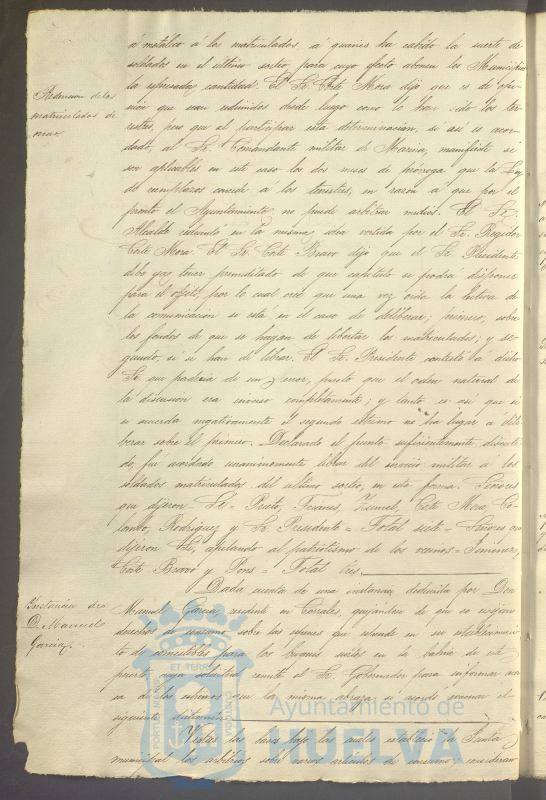 á metálico á los matriculados, á quienes ha cabido la suerte de
soldados en el último sorteo, para cuyo efecto abonen los Municipios
la espresada cantidad. El Sr. Corte Mora dijo que es de opi-
nión que sean redimidos desde luego como lo han sido los ter-
restres, pero que al participar esta determinacion, si asi es acor-
dado, al Sr. Comandante militar de Marina, manifieste si
son aplicables en este caso los dos meses de próroga que la Ley
de reemplazos concede á los terrestres, en razon á que por el
pronto el Ayuntamiento no puede arbitrar medios. El Sr.
Alcalde abundó en la misma idea vertida por el Sr. Regidor
Corte Mora. El Sr. Corte Bravo dijo que el Sr. Presidente
debe ya tener premeditado de que capitulo se podrá disponer
para el objeto, por lo cual cree que una vez oida la lectura de
la comunicacion se está en el caso de deliberar; primero, sobre
los fondos de que se hayan de libertar los matriculados; y se-
gundo, si se han de librar. El Sr. Presidente contestó á dicho
Sr. que padecia de un error, puesto que el orden natural de
la discusion era inverso completamente; y tanto es asi que si
se acuerda negativamente el segundo estremo no ha lugar á deli-
berar sobre el primero. Declarado el punto suficientemente discuti-
do, fué acordado unanimemente librar del servicio militar á los
soldados matriculados del último sorteo, en esta forma. Señores
que dijeron Si = Prieto, Jimel, Corte Mora, Co-
Rodriguez y Sr. Presidente = Total siete = Señores que
dijeron No, apelando al patriotismo de los vecinos = Jimenez,
Corte Bravo y Pons = Total tres.
Redencion de los
matriculados de
mar.
Dada cuenta de una instancia deducida por Don
Manuel Garcia, residente en Corrales, quejándose de que se exijan
derechos de consumo sobre las especies que espende en su establecimien-
to de comestibles para los buques surtos en la bahia de este
puerto, cuya solicitud remite el Sr. Gobernador para informar acer-
ca de los estremos que la misma abraza se acordó evacuar el
siguiente dictamen
Instancia de
D. Manuel
Garcia.
Vistas las bases bajo las cuales estableció la Junta
municipal los arbitrios sobre varios articulos de consumo; consideran-
PORTUS MARIS
ET TERRÆ
CUSTODIA
Ayuntamiento de
HUELVA